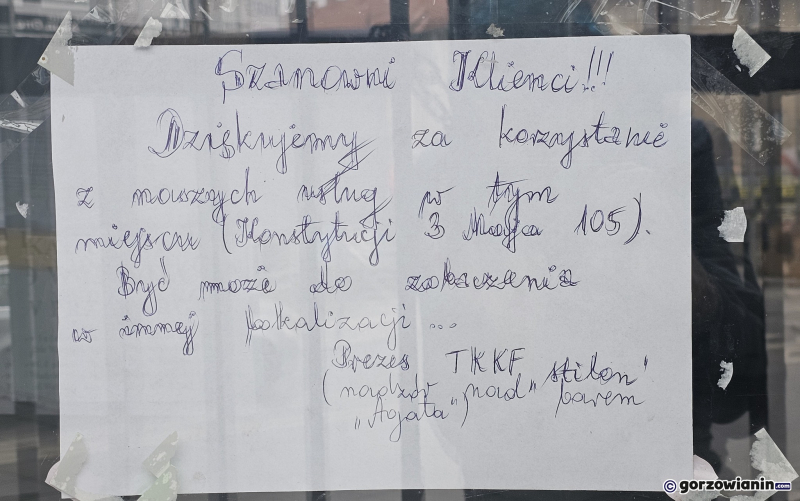 Szanowni Klienci!!!
Dziękujemy za korzystanie
z naszych usług w tym
miejscu (Konstytucji 3 Maja 105).
Być może do zobaczenia
w innej lokalizacji...
Prezes TKKF „Stilon"
(nadzór nad barem
„Agata")
© gorzowianin.com